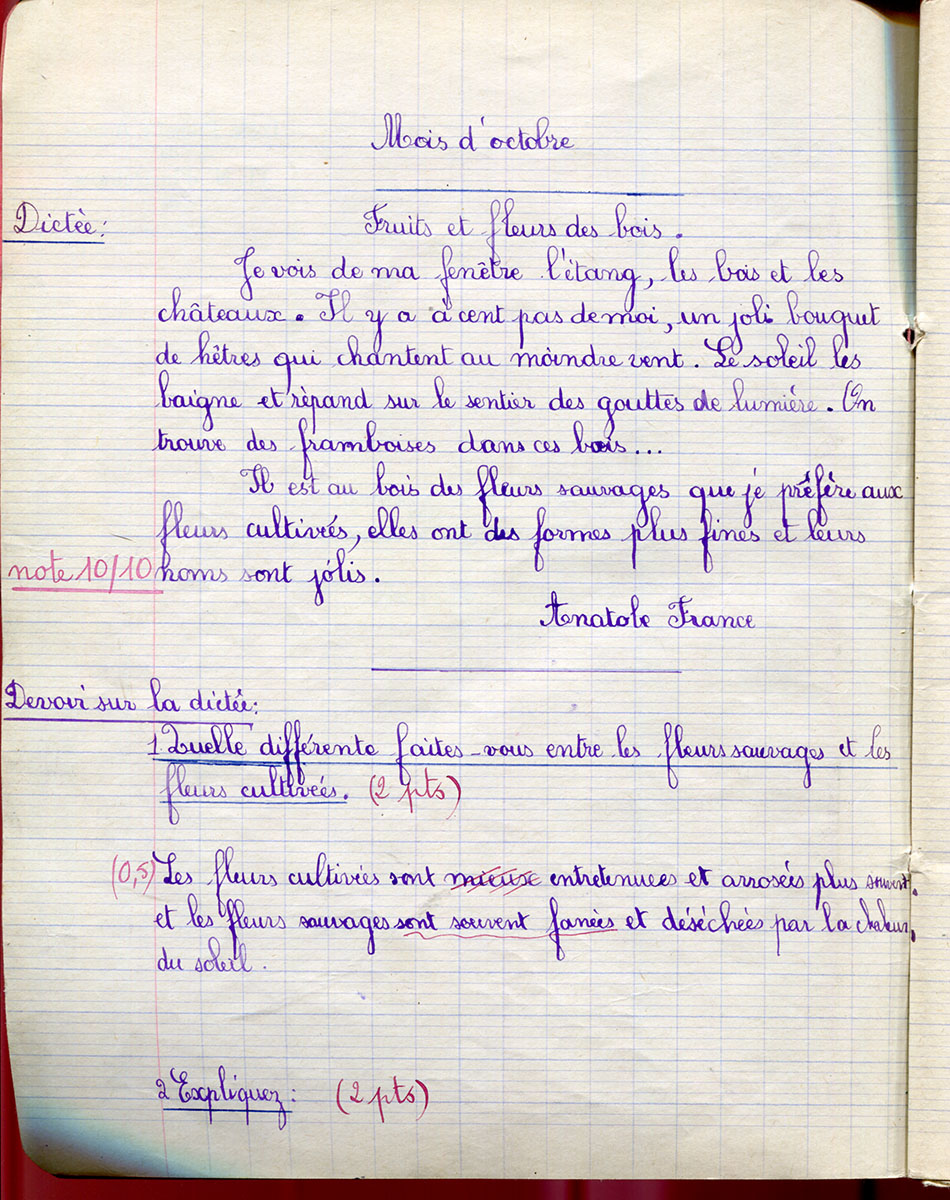 Mois d'octobre
Dictée:
Fruits et fleurs des bois.
Je vois de ma fenêtre l'étang, les bois et les
châteaux. Il y a à cent pas de moi, un joli bouquet
de hêtres qui chantent au moindre vent. Le soleil les
baigne et répand sur le sentier des gouttes de lumière. On
trouve des framboises dans ces bois...
Il est au bois des fleurs sauvages que je préfère aux
fleurs cultivées, elles ont des formes plus fines et leurs
note 10/10 noms sont jolis.
Anatole France
Devoir sur la dictée:
1 Quelle différente faites-vous entre les fleurs sauvages et les
fleurs cultivées. (2 pts)
(0,5) Les fleurs cultivées sont mieuse entretenues et arrosées plus souvent.
et les fleurs sauvages sont souvent fanées et déséchées par la chaleur,
du soleil.
2 Expliquez: (2 pts)